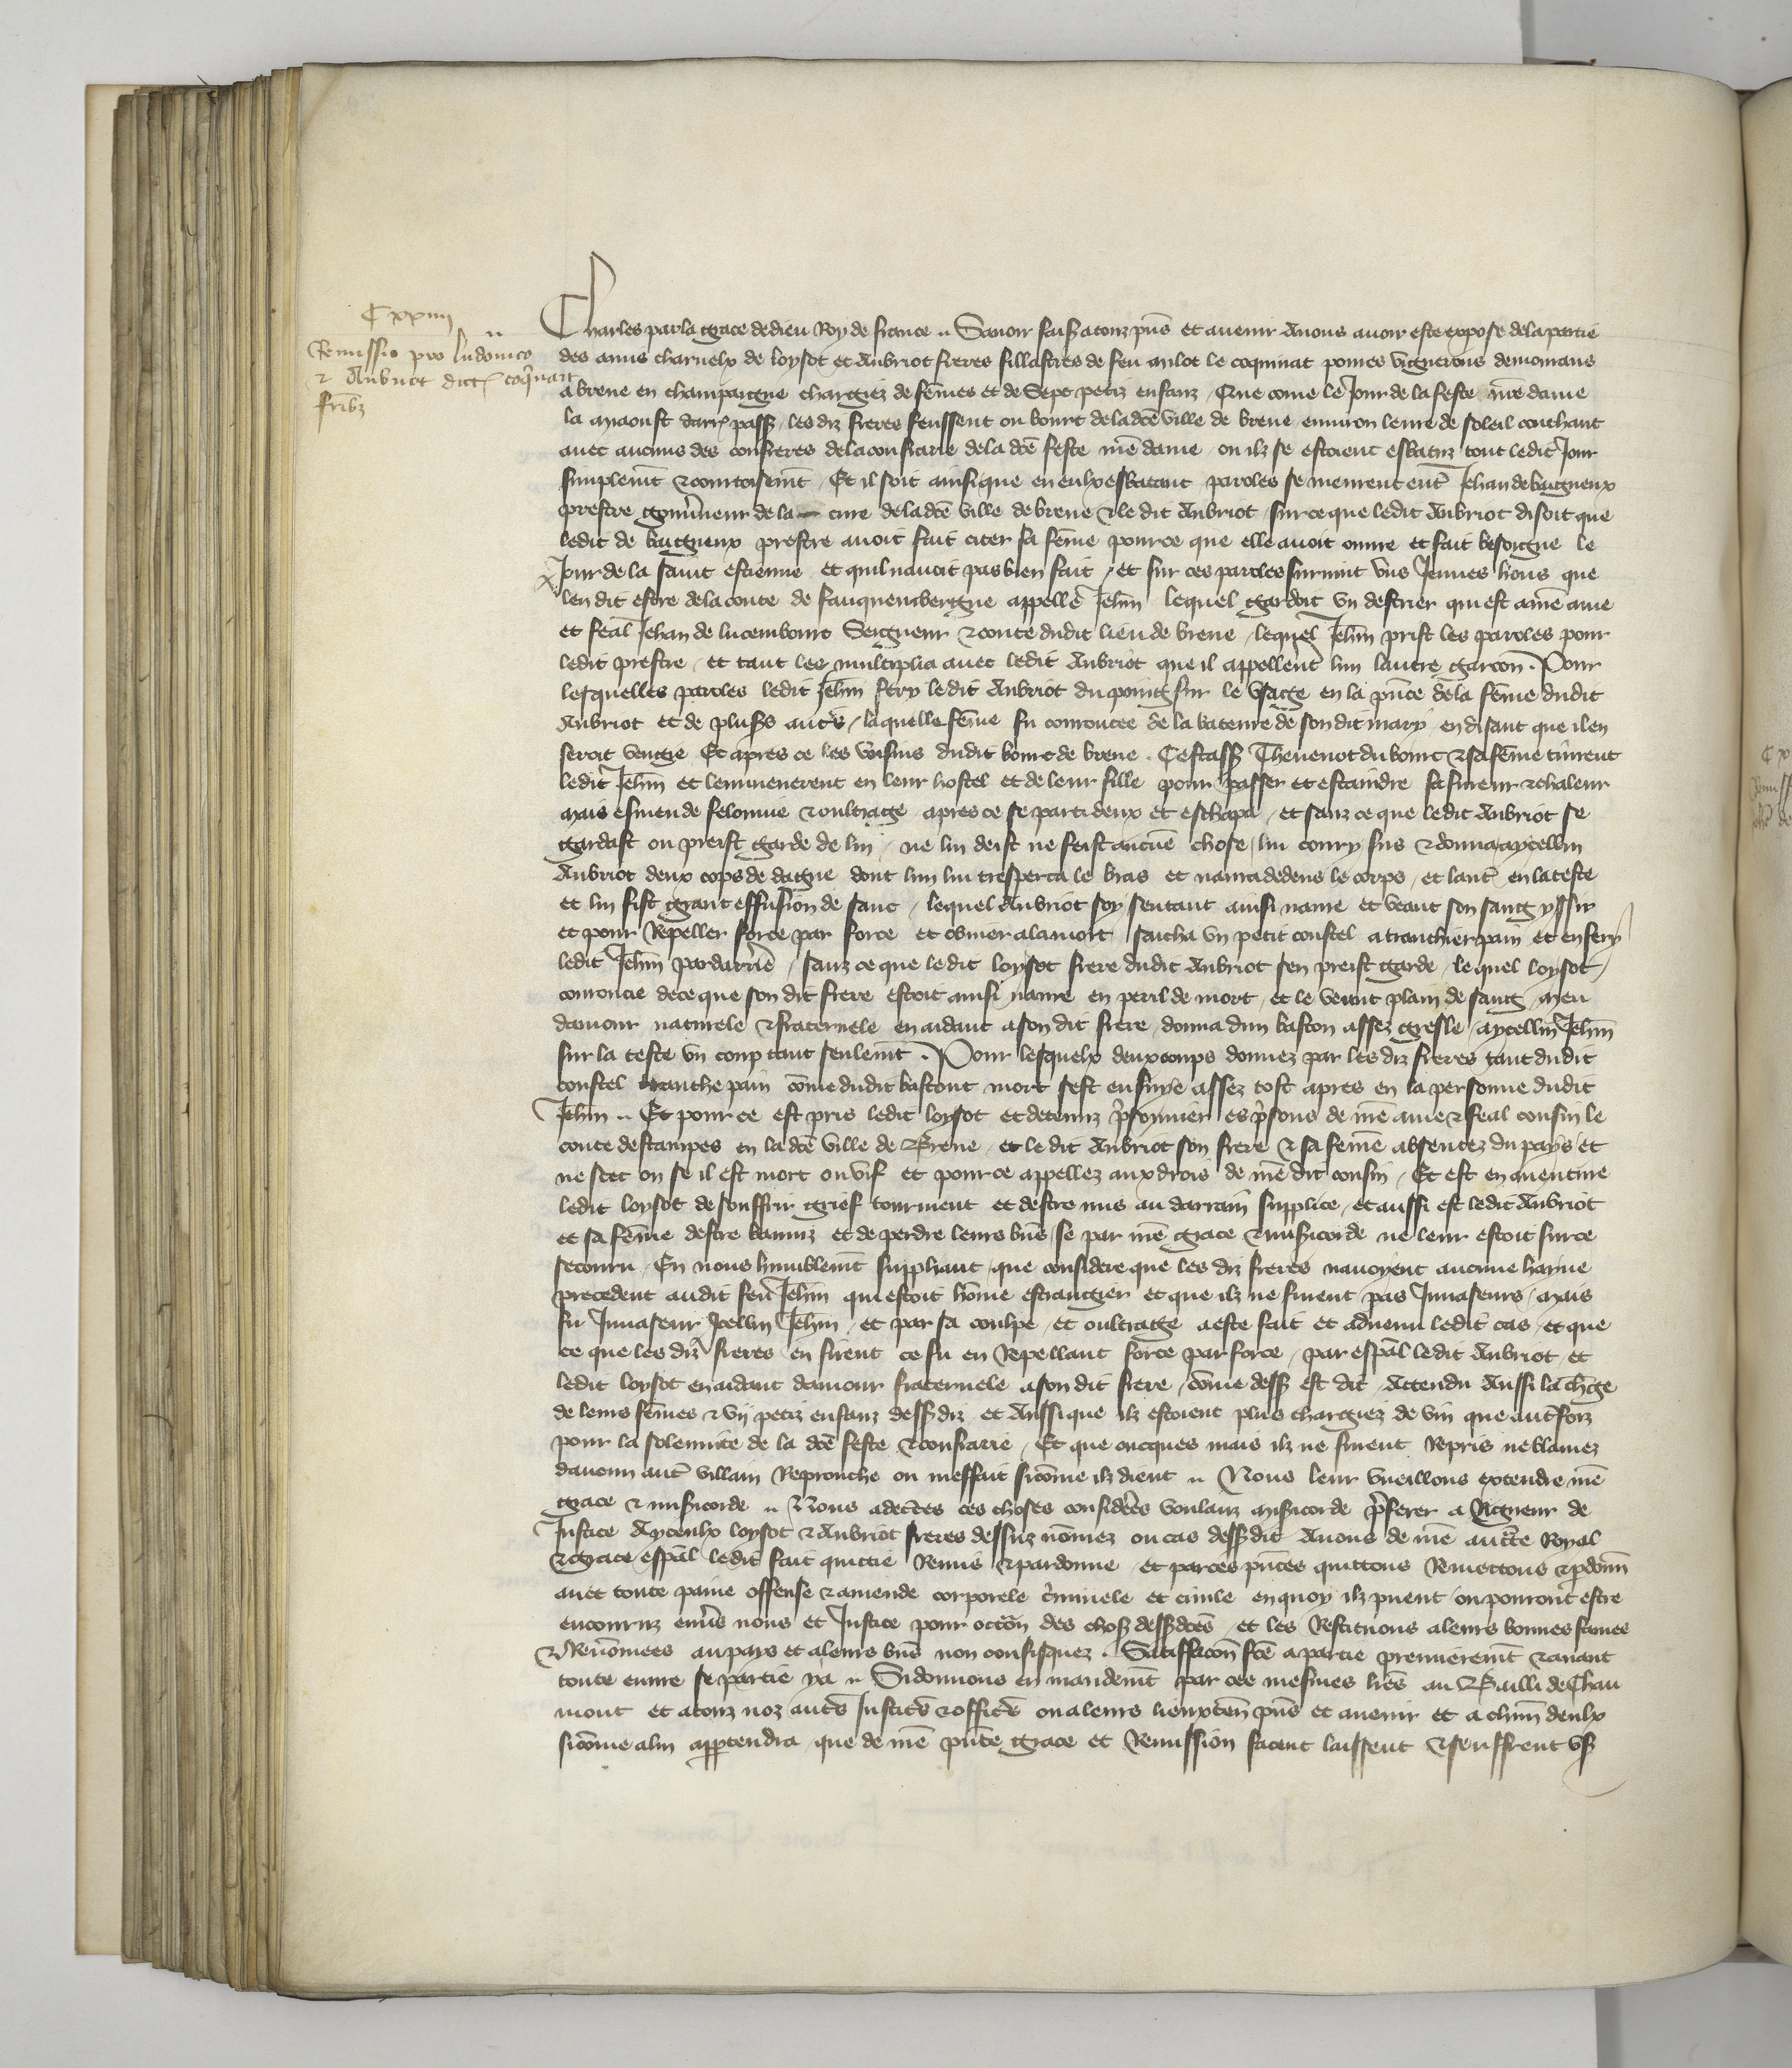 C xxiiii
Remissio pro ludovico
⁊ Aubriot dict coqnart
fribz
Charles par la grace de dieu Roy de france .. Savoir faisz a touz pns et avenir A nous avoir este expose de la partie
des amis charnelx de loysot et Aubriot freres fillastres de feu milot le coquinat povres vignerons demourans
a brene en champaigne chargiez de femes et de Sept petiz enfanz / Que come le Jour de la feste nre dame
la myaoust darr pass / les diz freres feussent ou bourc de la dce ville de brene environ leure de soleil couchant
avec aucuns des confreres de la confrarie de la dce feste nre dame / ou ilz se estoient esbatuz tout ledit Jour
simplemt ⁊ courtoisemt / Et il soit ainsi que en eulx esbatant paroles se meurent ent Jehan de baigneux
prestre gouvneur de la cure de la dce ville de brene ⁊ le dit Aubriot / sur ce que ledit Aubriot disoit que
ledit de baigneux prestre avoit fait citer sa feme pource que elle avoit ouvre et fait besoigne le
Jour de la saint estienne et quil navoit pas bien fait / et sur ces paroles survint uns Jeunes homs que
len dit estre de la conte de fauquemberge appelle Jehin lequel gardoit un destrier qui est a nre ame
et feal Jehan de lucembourc Seigneur ⁊ conte dudit lieu de brene / lequel Jehin prist les paroles pour
ledit prestre / et tant les multiplia avec ledit Aubriot que il appellent lun lautre garcon . Pour
lesquelles paroles ledit Jehin fery ledit Aubriot du poing sur le visage en la pnce de la feme dudit
Aubriot et de plusrs autrs / laquelle feme fu couroucee de la bateure de son dit mary en disant que il en
seroit venge Et apres ce les voisins dudit bourc de brene . Cestass Thevenot du bourc ⁊ sa feme tirrent
ledit Jehin et lenmenerent en leur hostel et de leur fille pour passer et estaindre sa fureur ⁊ chaleur
mais esmeu de felonnie ⁊ oultrage apres ce se parti deux et eschapa / et sanz ce que ledit Aubriot se
gardast ou preist garde de lui / ne lui deist ne feist aucune chose / lui coury sus ⁊ donna aycellui
Aubriot deux cops de dague dont lun lui tresperca le bras et navra dedens le corps / et laut en la teste
et lui fist grant effusion de sanc / lequel Aubriot soy sentant ainsi navre et veant son sang yssir
et pour Repeller force par force et obvier a la mort sacha un petit coustel a tranchier pain et en fery
ledit Jehin par darrie / sanz ce que le dit loysot frere dudit Aubriot sen preist garde / lequel loysot
couroucie de ce que son dit frere estoit ainsi navre en peril de mort / et le veant plain de sang meu
damour naturele ⁊ fraternele en aidant a son dit frere / donna dun baston assez gresle / aycellui Jehin
sur la teste un coup tant seulemt . Pour lesquelx deux coups donnez par les diz freres tant dudit
coustel tranche pain come dudit bastout mort sest ensuye assez tost apres en la personne dudit
Jehin .. Et pour ce est pris ledit loysot et detenuz psonnier es psons de nre ame ⁊ feal cousin le
conte destampes en la dce ville de Brene / et le dit Aubriot son frere ⁊ sa feme absentez du pays et
ne scet on se il est mort ou vif et pour ce appellez aux drois de nre dit cousin / Et est en aventure
ledit loysot de souffrir grief tourment et destre mis au darrain supplice / et aussi est ledit Aubriot
et sa feme destre banniz et de perdre leurs bns / se par nre grace ⁊ misicorde ne leur estoit sur ce
secouru / En nous humblemt suppliant / que considere que les diz freres navoyent aucune hayne
precedent audit feu Jehin qui estoit home estrangier et que ilz ne furent pas Invaseurs / mais
fu Invaseur Icellui Jehin / et par sa coulpe / et oultrage a este fait et advenu ledit cas / et que
ce que les diz freres en firent ce fu en Repellant force par force / par espal ledit Aubriot / et
ledit loysot en aidant damour fraternele a son dit frere / come dess est dit / Attendu Aussi la chge
de leurs femes ⁊ vij petiz enfanz dess diz et Aussi que ilz estoient plus chargiez de vin que autfoiz
pour la solennite de la dce feste ⁊ confrarie / Et que oncques mais ilz ne furent Repris ne blamez
daucun aut villain Reprouche ou meffait sicome ilz dient .. Nous leur vueillons extendre nre
grace ⁊ misicorde .. Nous adectes ces choses considerees voulanz misicorde pferer a Rigueur de
Justice Aycculx loysot ⁊ Aubriot freres dessuz nomez ou cas dessdit Avons de nre aucte Royal
⁊ grace espal ledit fait quittie Remis ⁊ pardonne et par ces pntes quittons Remettons ⁊ pdonn
avec toute paine offense ⁊ amende corporele criminele et civile en quoy ilz puent ou pourront estre
encouruz envs nous et Justice pour occon des chosz dessdces / et les Restituons a leurs bonnes fames
⁊ Renomees au pays et a leurs bns non confisquez . Satiffacon fce a partie premieremt ⁊ avant
toute euvre se partie ya .. Si donnons en mandemt par ces mesmes lres au Bailli de Chau
mont et a touz noz autrs Justics ⁊ offics ou a leurs lieuxten pns et avenir et a chun deulx
sicome a lui appartendra que de nre pnte grace et Remission facent laissent ⁊ seuffrent us